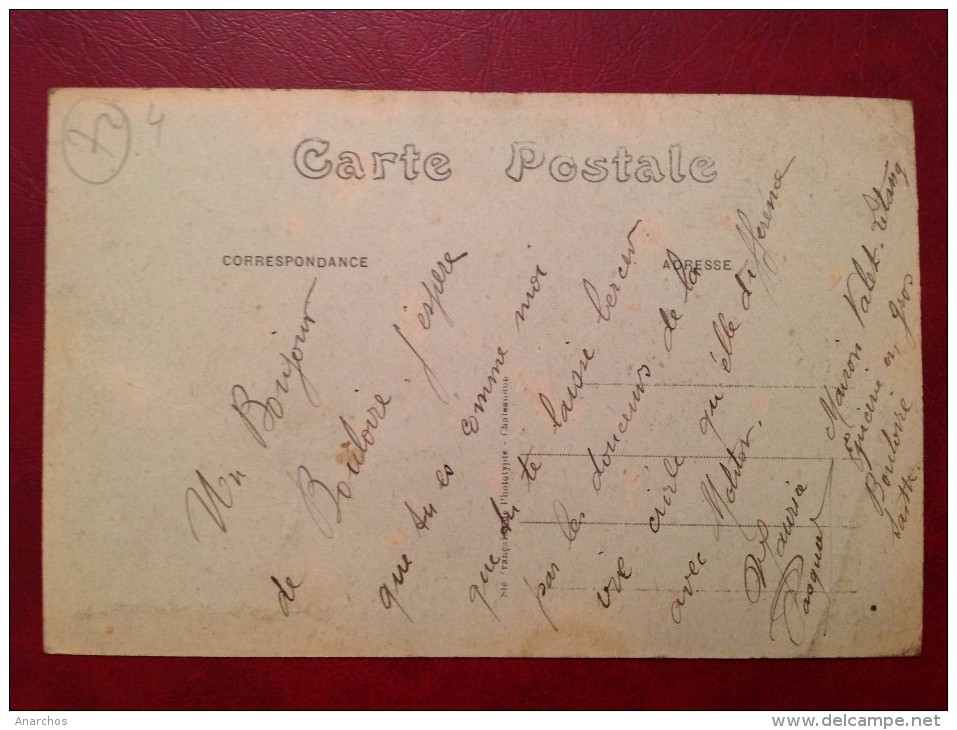 4
Carte Postale
CORRESPONDANCE
ADRESSE
Un Bonjour
de Bouloire. J'espere
que tu es comme moi
que tu te laisse bercer
par les douceurs de la
vie civile qu'elle difference
avec Molitor.
Pasquer
Maison Valet-Etang
Epicerie en gros
Bouloire
Sarthe
Sté Française de Phototypie - Châteaudun
Anarchos
www.delcampe.net